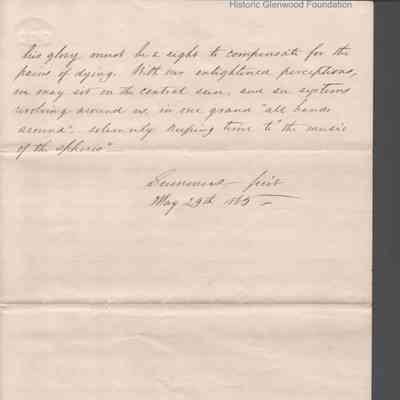 Historic Glenwood Foundation
his glory must be a sight to compensate for the
pains of dying. With our enlightened perceptions,
we may sit on the central sun, and see systems
revolving around us in one grand "all hands
around". solemnly keeping time to "the music
of the spheres"
fecit
May 29th 1865